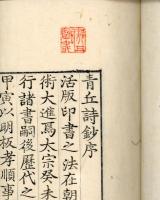 青丘詩鈔序
活版印書之法在朝
術大進焉太宗癸未
行諸書嗣後歷代之
甲寅以明板孝順事